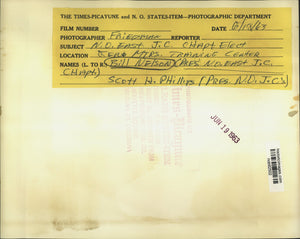 THE TIMES-PICAYUNE and N. O. STATES-ITEM—PHOTOGRAPHIC DEPARTMENT
FILM NUMBER
PHOTOGRAPHER Friedman REPORTER
SUBJECT N.O. EAST J.C. CHAPT. Elect
LOCATION TRAINING CENTER
NAMES (L. TO R.) (Bill Nelson) (PRES N.O. EAST J.C. CHAPT)
SCOTT H. Phillips (PRES. N.O. J.C.'s)
JUN 19 1963